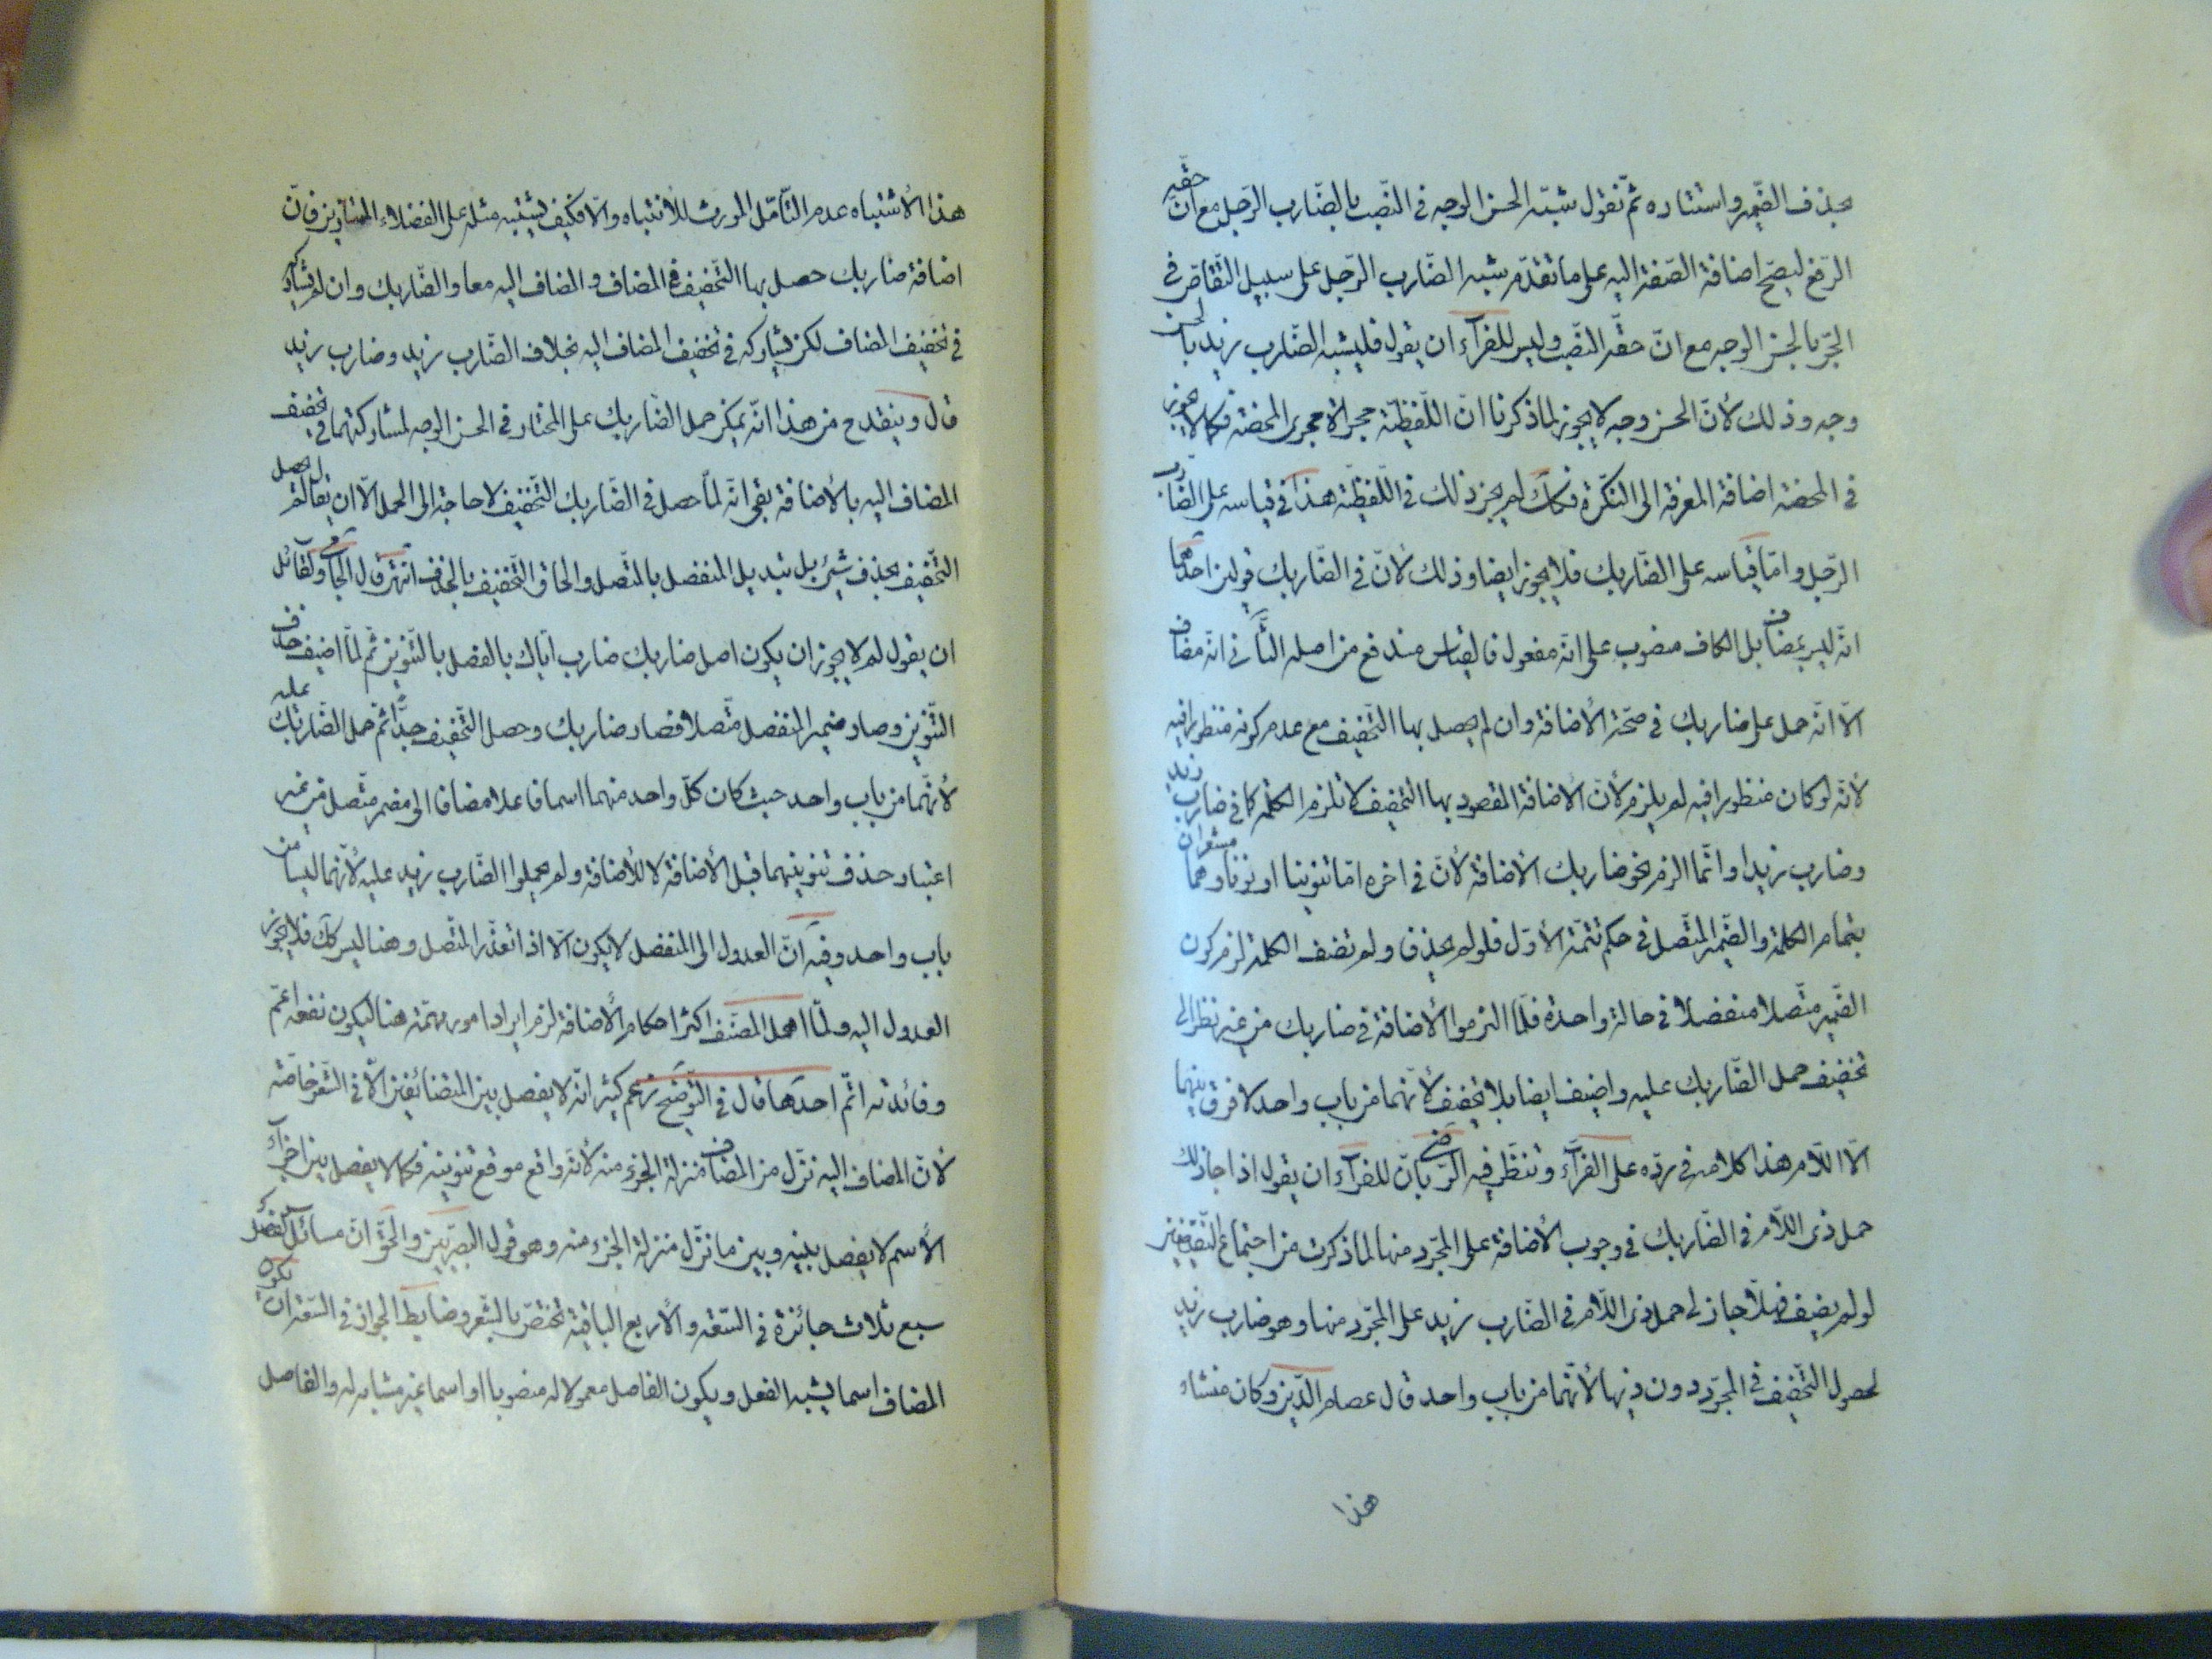 بحذف الضمير واستتاره ثمّ نقول شبّه الحسن الوجه في النّصب بالضّارب الرّجل مع انّ حقّه
الرّفع ليصحّ اضافة الصّفة اليه على ما تقدّم وشبه الضّارب الرّجل على سبيل التّقاصّ في
الجرّ بالحسن الوجه مع انّ حقّه النّصب وليس للفرّاء ان يقول فليشبه الضّارب زيد بالحسن
وجه وذلك لأنّ الحسن وجه لا يجوز لما ذكرنا انّ اللّفظيّة مجراة مجرى المحضة فكما لا يجوز
في المحضة اضافة المعرفة الى النّكرة فكك لم يجز ذلك في اللّفظيّة هذا في قياسه على الضّارب
الرّجل وامّا قياسه على الضّاربك فلا يجوز ايضا وذلك لأنّ في الضّاربك قولين احدهما
انّه ليس بمضاف بل الكاف منصوب على انّه مفعول فالقياس مندفع من اصله الثّاني انّه مضاف
الّا انّه حمل على ضاربك في صحّة الأضافة وان لم يحصل بها التّخفيف مع عدم كونه منظورا فيه
لأنّه لو كان منظورا فيه لم يلزم لأنّ الأضافة المقصود بها التّخفيف لا تلزم الكلمة كما في ضارب زيد
وضارب زيدا وانّما الزم نحو ضاربك الأضافة لأنّ في اخره امّا تنوينا او نونا وهما مشعران
بتمام الكلمة والضّمير المتّصل في حكم تتمّة الأوّل فلو لم يحذف ولم تضف الكلمة لزم كون
الضّمير متّصلا منفصلا في حالة واحدة فلمّا التزموا الأضافة في ضاربك من غير نظر الى
تخفيف حمل الضّاربك عليه واضيف ايضا بلا تخفيف لأنّهما من باب واحد لا فرق بينهما
الّا اللّام هذا كلامه في ردّه على الفرّاء وتنظّر فيه الرّضي بانّ للفرّاء ان يقول اذا جاز لك
حمل ذي اللّام في الضّاربك في وجوب الأضافة على المجرّد منها لما ذكرت من اجتماع النّقيضين
لو لم يضف فهلّا جاز لي حمل ذي اللّام في الضّارب زيد على المجرّد منها وهو ضارب زيد
لحصول التّخفيف في المجرّد دون ذيها لأنّهما من باب واحد قال عصام الدّين وكان منشاء
هذا
هذا الأشتباه عدم التّأمّل المورث للأنتباه والّا فكيف يشتبه مثله على الفضلاء فانّ
اضافة ضاربك حصل بها التّخفيف في المضاف والمضاف اليه معا والضّاربك وان لم يشاركه
في تخفيف المضاف لكن يشاركه في تخفيف المضاف اليه بخلاف الضّارب زيد وضارب زيد
قال وينقدح من هذا انّه يمكن حمل الضّاربك على المختار في الحسن الوجه لمشاركتهما في تخفيف
المضاف اليه بالأضافة بقي انّه لمّا حصل في الضّاربك التّخفيف لا حاجة الى الحمل الّا ان يقال لم يحصل
التّخفيف بحذف شئ بل بتبديل المنفصل بالمتّصل والحاق التّخفيف بالحذف انتهى قال الجاى ولقائل
ان يقول لم لا يجوز ان يكون اصل ضاربك ضارب ايّاك بالفصل بالتّنوين ثمّ لمّا اضيف حذف
التّنوين وصار ضمير المنفصل متّصلا فصار ضاربك وحصل التّخفيف جدّا ثمّ حمل الضّاربك عليه
لأنّهما من باب واحد حيث كان كلّ واحد منهما اسما فاعلا مضافا الى مضمر متّصل من غير
اعتبار حذف تنوينهما قبل الأضافة لا للأضافة ولم يحملوا الضّارب زيد عليه لأنّهما ليسا من
باب واحد وفيه انّ العدول الى المنفصل لا يكون الّا اذا تعذّر المتّصل وهنا ليس كك فلا يجوز
العدول اليه ولمّا اهمل المصنّف اكثر احكام الأضافة لزم ايراد امور مهمّة هنا ليكون نفعه اعمّ
وفائدته اتمّ احدها قال في التّوضيح زعم كثير انّه لا يفصل بين المتضائفين الّا في الشّعر خاصّة
لأنّ المضاف اليه نزّل من المضاف منزلة الجزء منه لأنّه واقع موقع تنوينه فكما لا يفصل بين اجزاء
الأسم لا يفصل بينه وبين ما نزّل منزلة الجزء منه وهو قول البصريّين والحقّ انّ مسائل الفصل
سبع ثلاث جائزة في السّعة والأربع الباقية تختصّ بالشّعر وضابط الجواز في السّعة ان يكون
المضاف اسما يشبه الفعل ويكون الفاصل معمولا له منصوبا او اسما غير مشابه له والفاصل